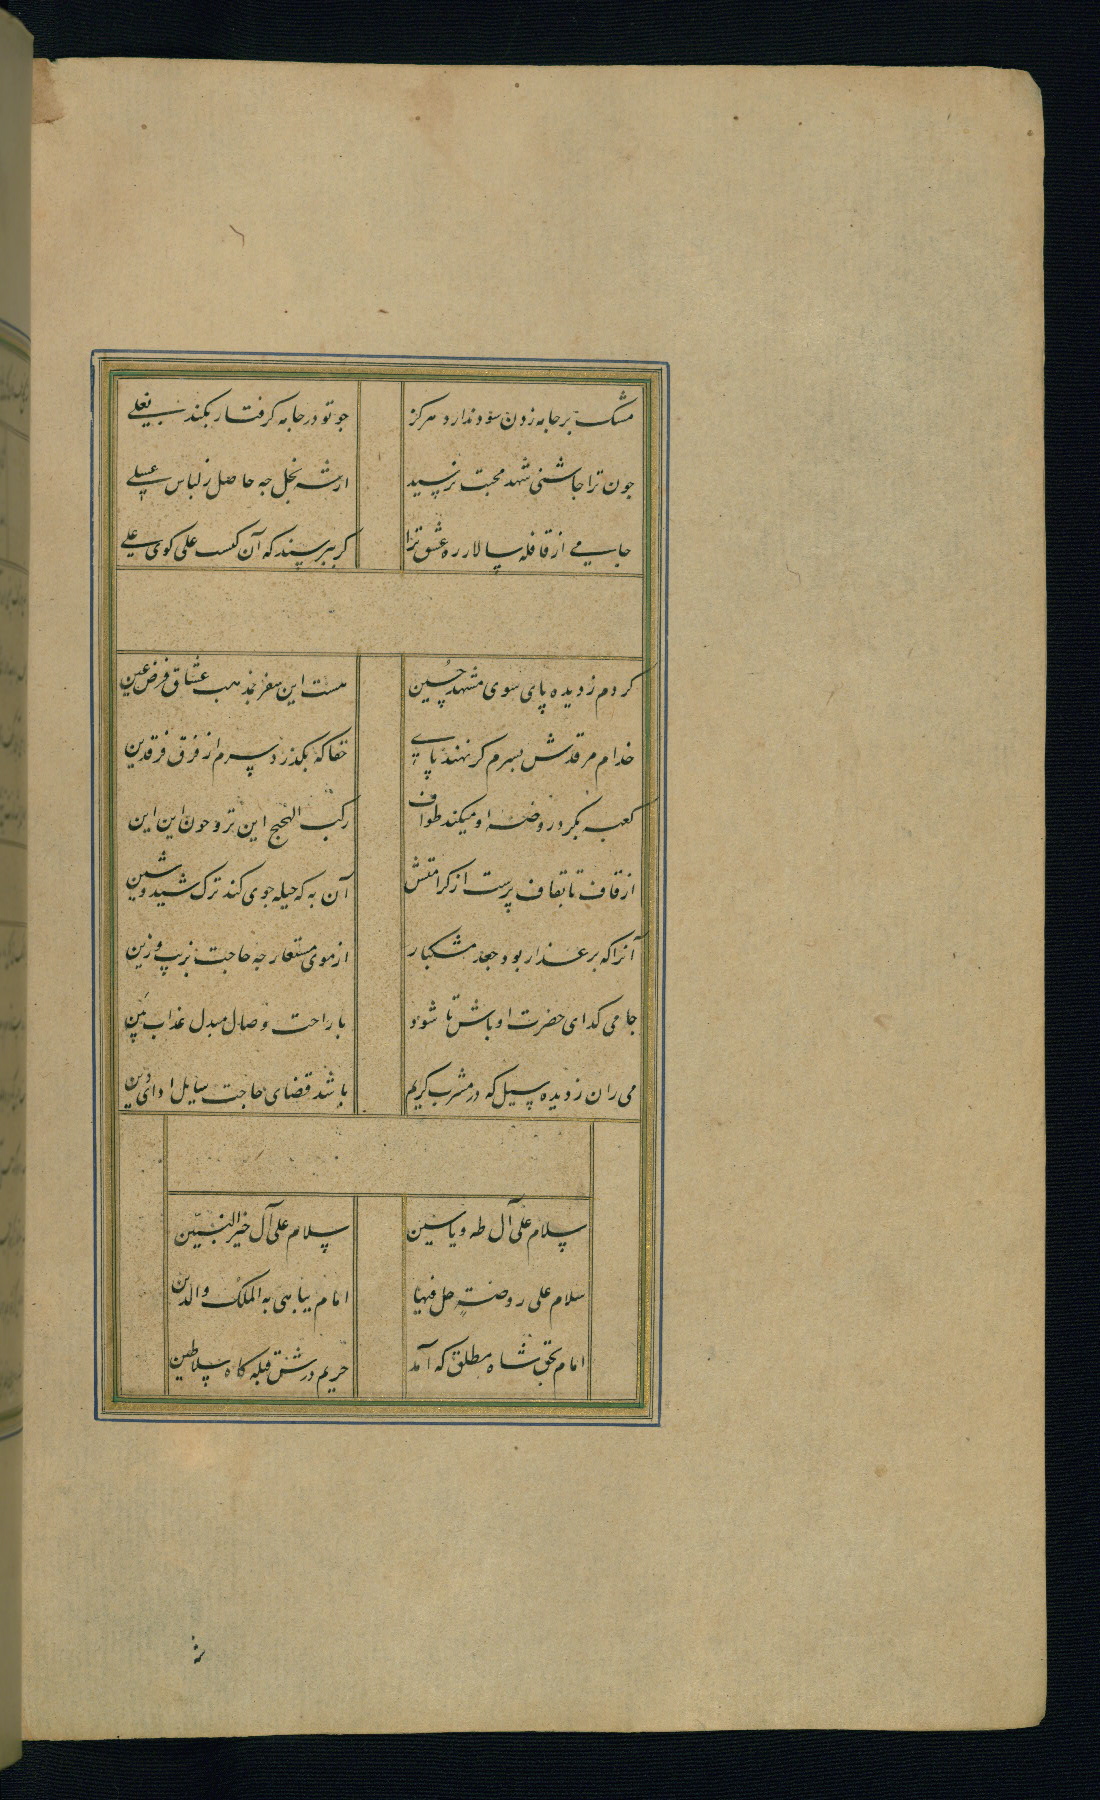 مشک بر جامه زدن سود ندارد هرگز جو تو در جامه گرفتار بگند بغلی
جون ترا جاشنی شهد محبت نرسید از شه نحل جه حاصل ز لباس عسلی
جامی از قافله سالار ره عشق ترا کر بپرسند که آن کیست علی کوی علی
کردم ز دیده پای سوی مشهد حسین هست این سفر بمذهب عشاق فرض عین
خدام مرقدش بسرم کر نهند پای حقا که بکذرد سرم از فرق فرقدین
کعبه بکرد روضه او میکند طواف رکب الحجیج این تروحون این این
از قاف تا بقاف پرست از کرامتش آن به که حیله جوی کند ترک شید و شین
آنرا که بر عذار بود جعد مشکبار از موی مستعار جه حاجت بزیب و زین
جامی کدای حضرت او باش تا شود با راحت وصال مبدل عذاب بین
می ران ز دیده سیل که در مشرب کریم باشد قضای حاجت سایل ادای دین
سلام علی آل طه و یاسین سلام علی آل خیر النبیین
سلام علی روضة حل فیها امام یباهی به الملک والدین
امام بحق شاه مطلق که آمد حریم درش قبله کاه سلاطین